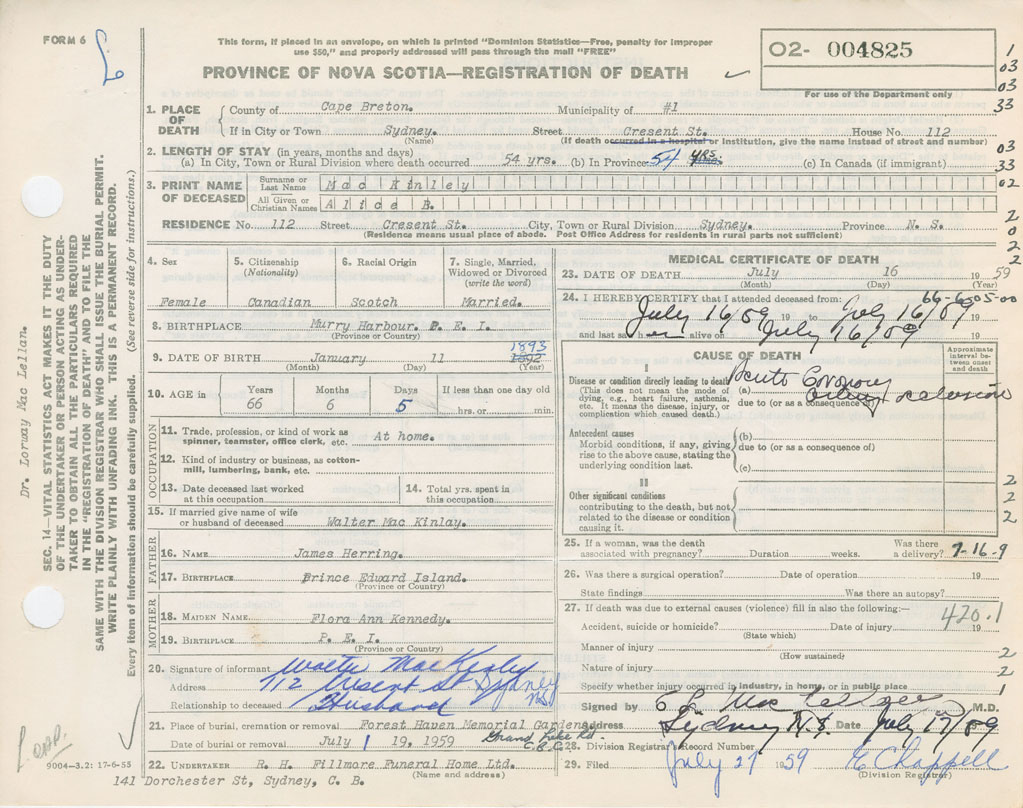 FORM 6
This form, if placed in an envelope, on which is printed "Dominion Statistics—Free, penalty for improper
use $50," and properly addressed will pass through the mail "FREE"
PROVINCE OF NOVA SCOTIA—REGISTRATION OF DEATH
02- 004825
For use of the Department only
1
03
03
33
03
33
02
2
0
2
2
1. PLACE OF DEATH
County of Cape Breton. Municipality of #1
If in City or Town Sydney. Street Cresent St. House No. 112
(Name) (If death occurred in a hospital or institution, give the name instead of street and number)
2. LENGTH OF STAY (in years, months and days)
(a) In City, Town or Rural Division where death occurred 54 yrs. (b) In Province 54 yrs. (c) In Canada (if immigrant)
3. PRINT NAME OF DECEASED
Surname or Last Name Mac Kinley
All Given or Christian Names Alice B.
RESIDENCE No. 112 Street Cresent St. City, Town or Rural Division Sydney. Province N. S.
(Residence means usual place of abode. Post Office Address for residents in rural parts not sufficient)
4. Sex
Female
5. Citizenship
(Nationality)
Canadian
6. Racial Origin
Scotch
7. Single, Married, Widowed or Divorced
(write the word)
Married.
8. BIRTHPLACE Murry Harbour. P. E. I.
(Province or Country)
9. DATE OF BIRTH January 11 1893 1892
(Month) (Day) (Year)
10. AGE in
Years Months Days If less than one day old
66 6 5 hrs. or min.
OCCUPATION
11. Trade, profession, or kind of work as
spinner, teamster, office clerk, etc. At home.
12. Kind of industry or business, as cotton-
mill, lumbering, bank, etc.
13. Date deceased last worked
at this occupation
14. Total yrs. spent in
this occupation
15. If married give name of wife
or husband of deceased Walter Mac Kinlay.
FATHER
16. NAME James Herring.
17. BIRTHPLACE Prince Edward Island.
(Province or Country)
MOTHER
18. MAIDEN NAME Flora Ann Kennedy.
19. BIRTHPLACE P. E. I.
(Province or Country)
20. Signature of informant Walter MacKinley
Address 112 Cresent St Sydney NS
Relationship to deceased Husband
21. Place of burial, cremation or removal Forest Haven Memorial Gardens
Grand Lake Rd. C.B.Co.
Date of burial or removal July 19, 1959
22. UNDERTAKER R. H. Fillmore Funeral Home Ltd.
(Name and address)
141 Dorchester St, Sydney, C. B.
MEDICAL CERTIFICATE OF DEATH
23. DATE OF DEATH July 16 1959
(Month) (Day) (Year)
66-6-05-00
24. I HEREBY CERTIFY that I attended deceased from:
July 16/59 19 to July 16/59 19
and last saw her alive on July 16/59 19
CAUSE OF DEATH
Approximate interval between onset and death
I
Disease or condition directly leading to death
(This does not mean the mode of
dying, e.g., heart failure, asthenia,
etc. It means the disease, injury, or
complication which caused death.)
(a) Acute Coronary
due to (or as a consequence of)
Antecedent causes
Morbid conditions, if any, giving
rise to the above cause, stating the
underlying condition last.
(b)
due to (or as a consequence of)
(c)
II
Other significant conditions
contributing to the death, but not
related to the disease or condition
causing it.
2
2
2
25. If a woman, was the death
associated with pregnancy? Duration weeks. Was there a delivery?
7-16-9
26. Was there a surgical operation? Date of operation 19
State findings Was there an autopsy?
27. If death was due to external causes (violence) fill in also the following:—
420.1
Accident, suicide or homicide? Date of injury 19
(State which)
Manner of injury
(How sustained)
2
Nature of injury
2
Specify whether injury occurred in industry, in home, or in public place
1
Signed by M.D.
Address Sydney N.S. Date July 17/59
28. Division Registrar Record Number
29. Filed July 27 1959 E Chappell
(Division Registrar)
Dr. Lorway Mac Lellan.
SEC. 14—VITAL STATISTICS ACT MAKES IT THE DUTY
OF THE UNDERTAKER OR PERSON ACTING AS UNDER-
TAKER TO OBTAIN ALL THE PARTICULARS REQUIRED
IN THE "REGISTRATION OF DEATH" AND TO FILE THE
SAME WITH THE DIVISION REGISTRAR WHO SHALL ISSUE THE BURIAL PERMIT.
WRITE PLAINLY WITH UNFADING INK. THIS IS A PERMANENT RECORD.
Every item of information should be carefully supplied. (See reverse side for instructions.)
9004-3.2: 17-6-55